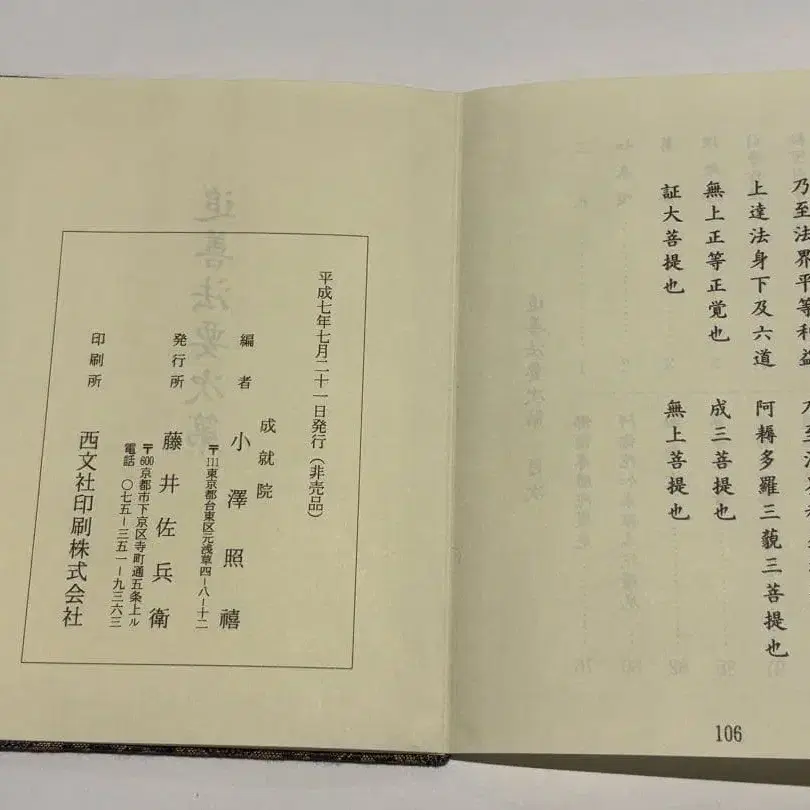 乃至法界平等利益
上達法身下及六道
無上正等正覚也
証大菩提也
阿耨多羅三藐三菩提也
成三菩提也
無上菩提也
106
平成七年七月二十一日発行（非売品）
編者 成就院 小澤照禧
〒111東京都台東区元浅草四ー八ー十二
発行所 藤井佐兵衛
〒600京都市下京区寺町通五条上ル
電話 〇七五ー三五一ー九三六三
印刷所 西文社印刷株式会社